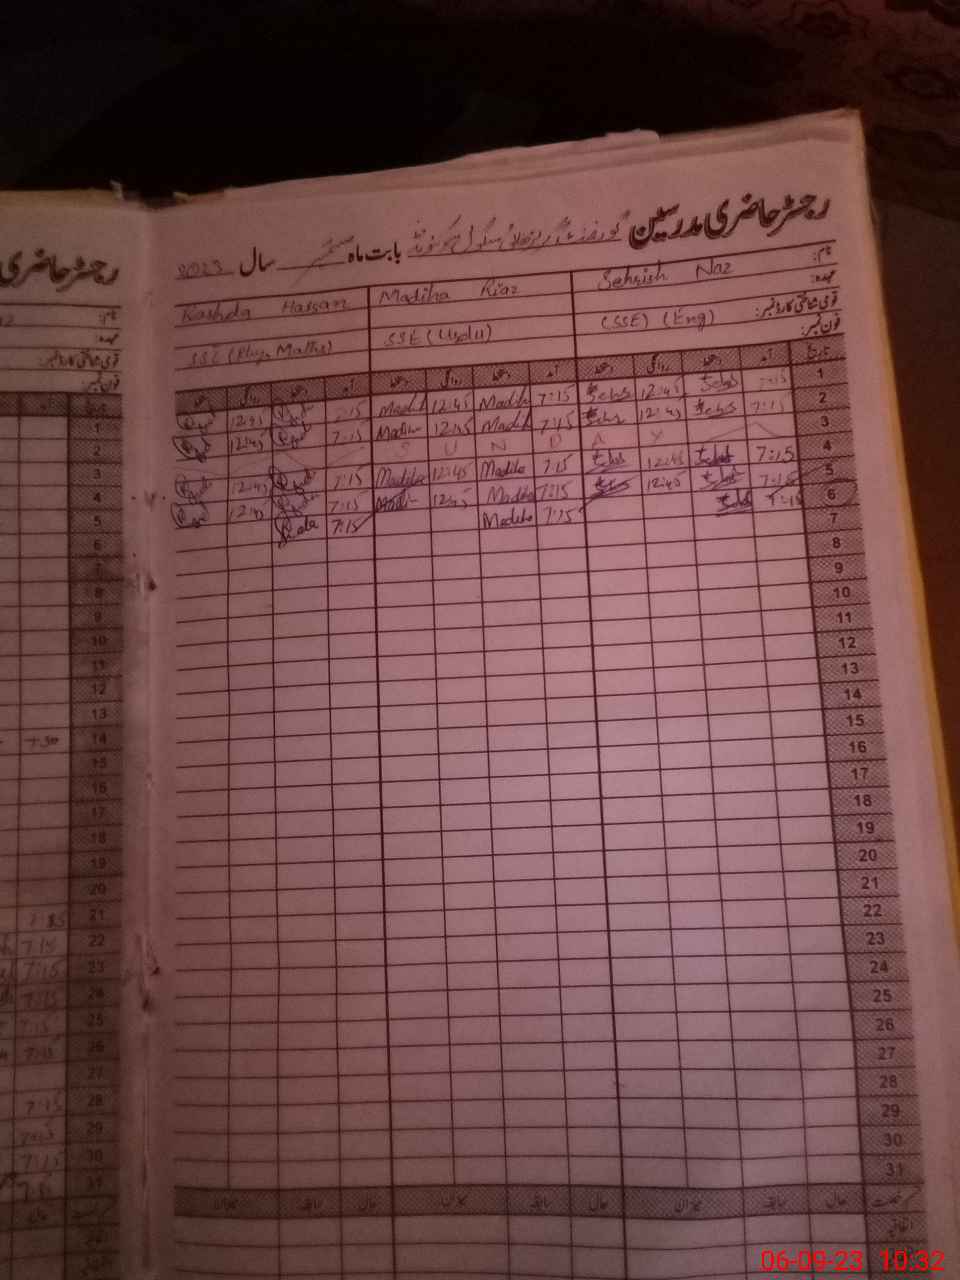 رجسٹر حاضری مدرسین گورنمنٹ گرلز ہائی سکول بابت ماہ ستمبر سال 2023
نام: Sehrish Naz Madiha Riaz Rashda Hassan
عہدہ: (SSE) (Eng) SSE (Urdu) SSE (Phy, Maths)
قومی شناختی کارڈ نمبر:
فون نمبر:
تاریخ آمد دستخط روانگی دستخط آمد دستخط روانگی دستخط آمد دستخط روانگی دستخط
1 7:15 Sehr 12:45 Sehs 7:15 Madiha 12:45 Madiha 7:15 12:45
2 7:15 Sehs 12:45 Sehr 7:15 Madiha 12:45 Madiha 7:15 12:45
3 S U N D A Y
4 7:15 Sehs 12:45 Sehs 7:15 Madiha 12:45 Madiha 7:15 12:45
5 7:15 Sehs 12:45 Sehs 7:15 Madiha 12:45 Madiha 7:15 12:45
6 7:15 Sehs 7:15 Madiha 7:15
7
8
9
10
11
12
13
14
15
16
17
18
19
20
21
22
23
24
25
26
27
28
29
30
31
رخصت حال سابقہ میزان حال سابقہ میزان حال سابقہ میزان
اتفاقیہ
رجسٹر حاضری
نام:
عہدہ:
قومی شناختی کارڈ نمبر:
فون نمبر:
1
2
3
4
5
6
7
8
9
10
11
12
13
14 7:30
15
16
17
18
19
20
21
22 7:15
23 7:15
24 7:15
25 7:15
26 7:15
27
28 7:15
29 7:15
30 7:15
31
حال
اتفاقیہ
06-09-23 10:32